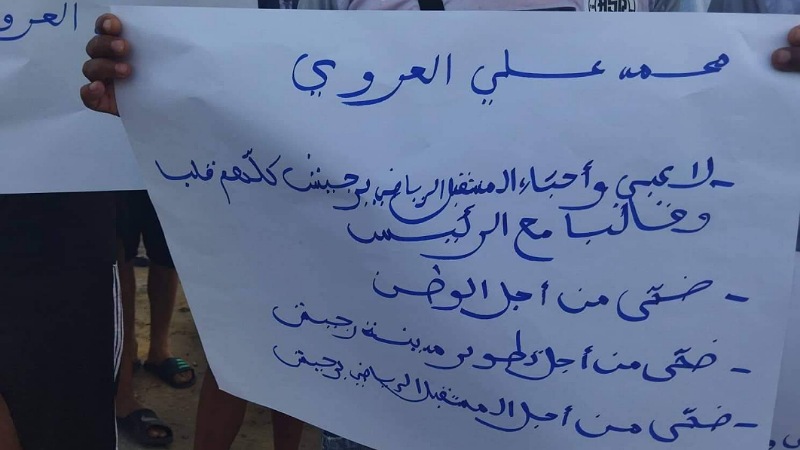 العرو
محمد علي العروي
- لاعبي وأحباء المستقبل الرياضي برجيش كلّهم قلبا
وقالبا مع الرئيس
- ضحّى من أجل الوطن
- ضحّى من أجل تطوير مدينة رجيش
- ضحّى من أجل المستقبل الرياضي برجيش